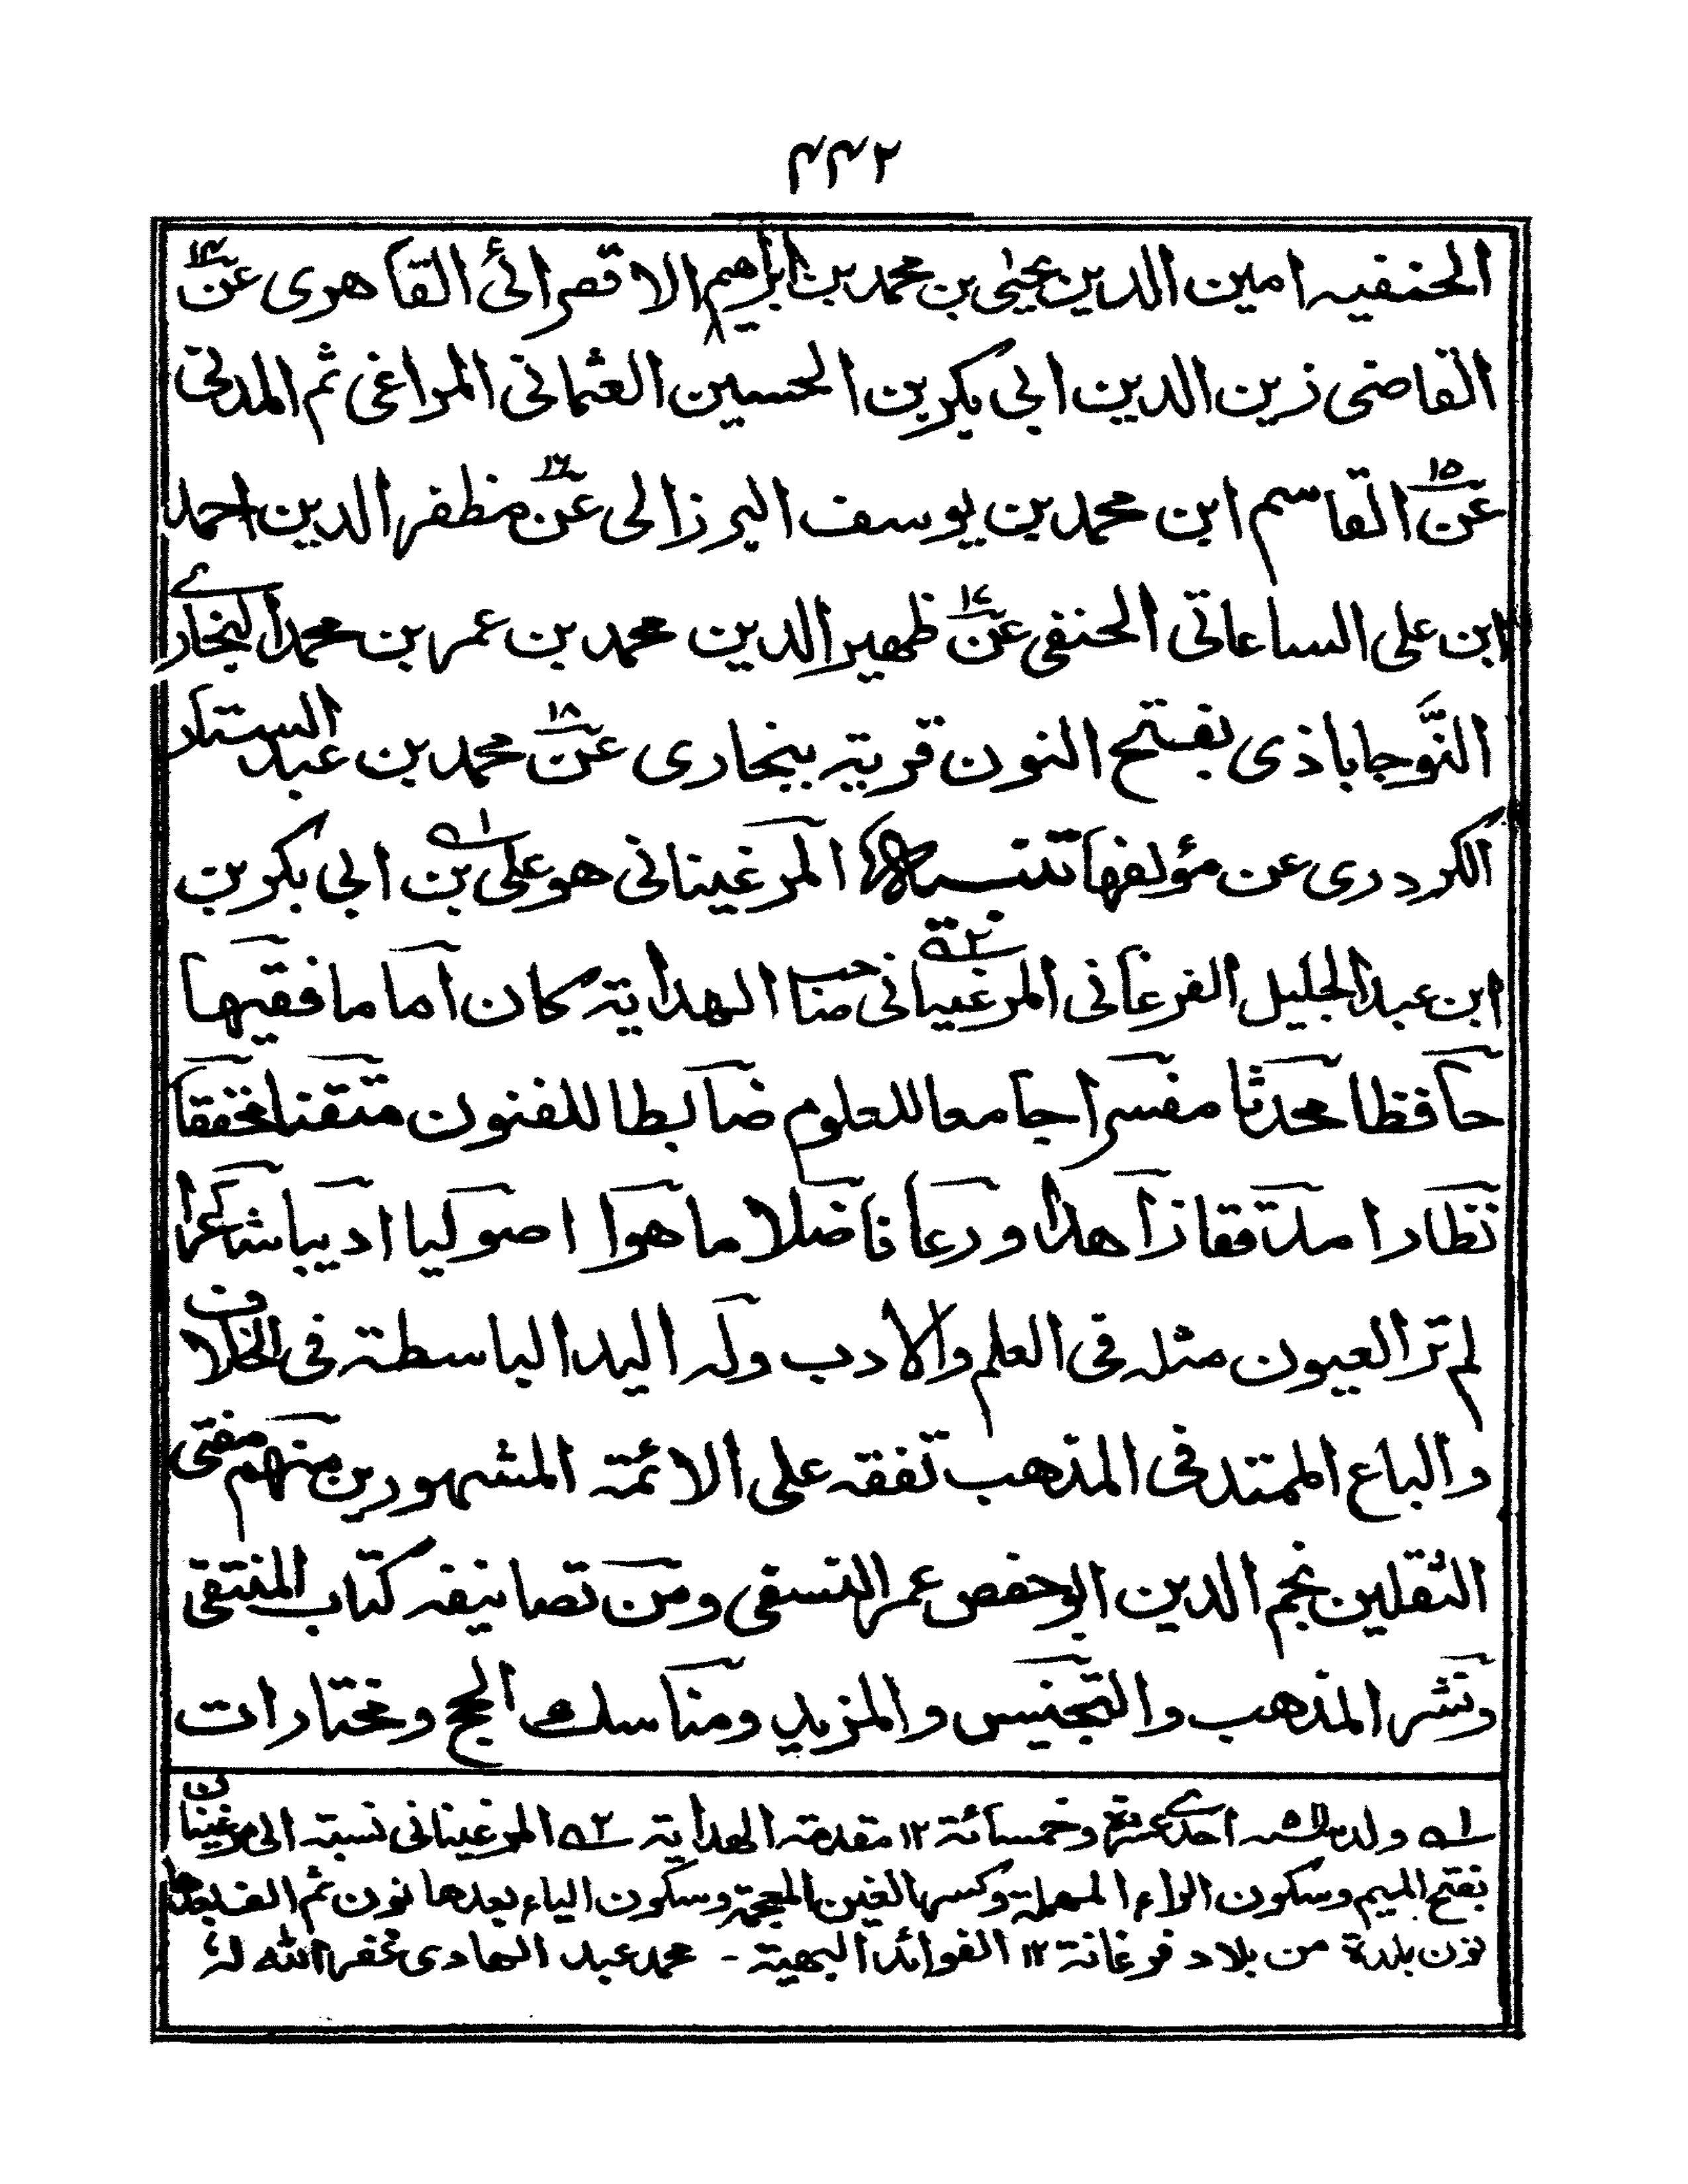 ۲۴۴
الحنفيه امين الدين يحيىٰ بن محمد بن ابرٰهيم الاقصرائى القاهرى عن۱۴
القاضى زين الدين ابى بكر بن الحسين العثمانى المراغى ثم المدنى
عن۱۵ القاسم ابن محمد بن يوسف البرزالى عن۱۶ مظفر الدين احمد
ابن على الساعاتى الحنفى عن۱۷ ظهير الدين محمد بن عمر بن محمد البخارى
النَّوجاباذى بفتح النون قرية ببخارى عن۱۸ محمد بن عبد الستار
الكردرى عن مؤلفها تنبيه المرغينانى هو على بن۱؎ ابى بكر بن
ابن عبد الجليل الفرغانى المرغينانى۲؎ صاحب الهداية كان اماما فقيها
حافظا محدثا مفسرا جامعا للعلوم ضابطا للفنون متقنا محققا
نظارا مدققا زاهدا ورعا فاضلا ماهرا اصوليا اديبا شاعرا
لم تر العيون مثله فى العلم والادب وله اليد الباسطة فى الخلاف
والباع الممتد فى المذهب تفقه على الائمة المشهورين منهم مفتى
الثقلين نجم الدين ابوحفص عمر النسفى ومن تصانيفه كتاب المنتقى
ونشر المذهب والتجنيس والمزيد ومناسك الحج ومختارات
۱؎ ولد سنة احدى عشرة وخمسمائة ۱۲ مقدمة الهداية ۲؎ المرغينانى نسبة الى مرغينان
بفتح الميم وسكون الراء المهملة وكسر الغين المعجمة وسكون الياء بعدها نون ثم الف بعدها
نون بلدة من بلاد فرغانة ۱۲ الفوائد البهية - محمد عبد الهادى غفر الله له